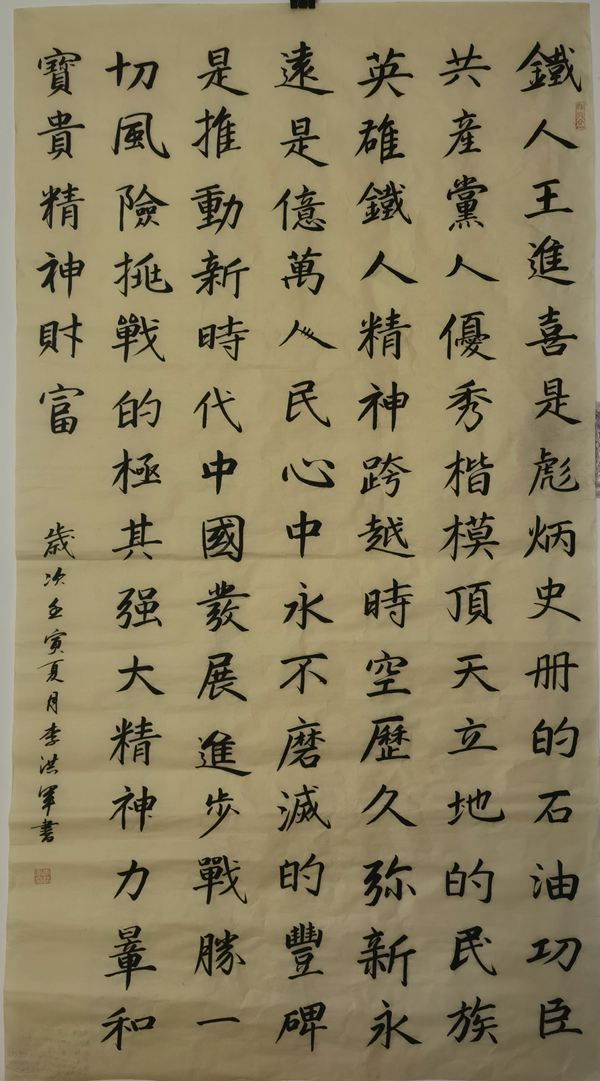 鐵人王進喜是彪炳史册的石油功臣
共產黨人優秀楷模頂天立地的民族
英雄鐵人精神跨越時空歷久弥新永
遠是億萬人民心中永不磨滅的豐碑
是推動新時代中國發展進步戰勝一
切風險挑戰的極其强大精神力暈和
寶貴精神財富
歲次壬寅夏月李洪軍書